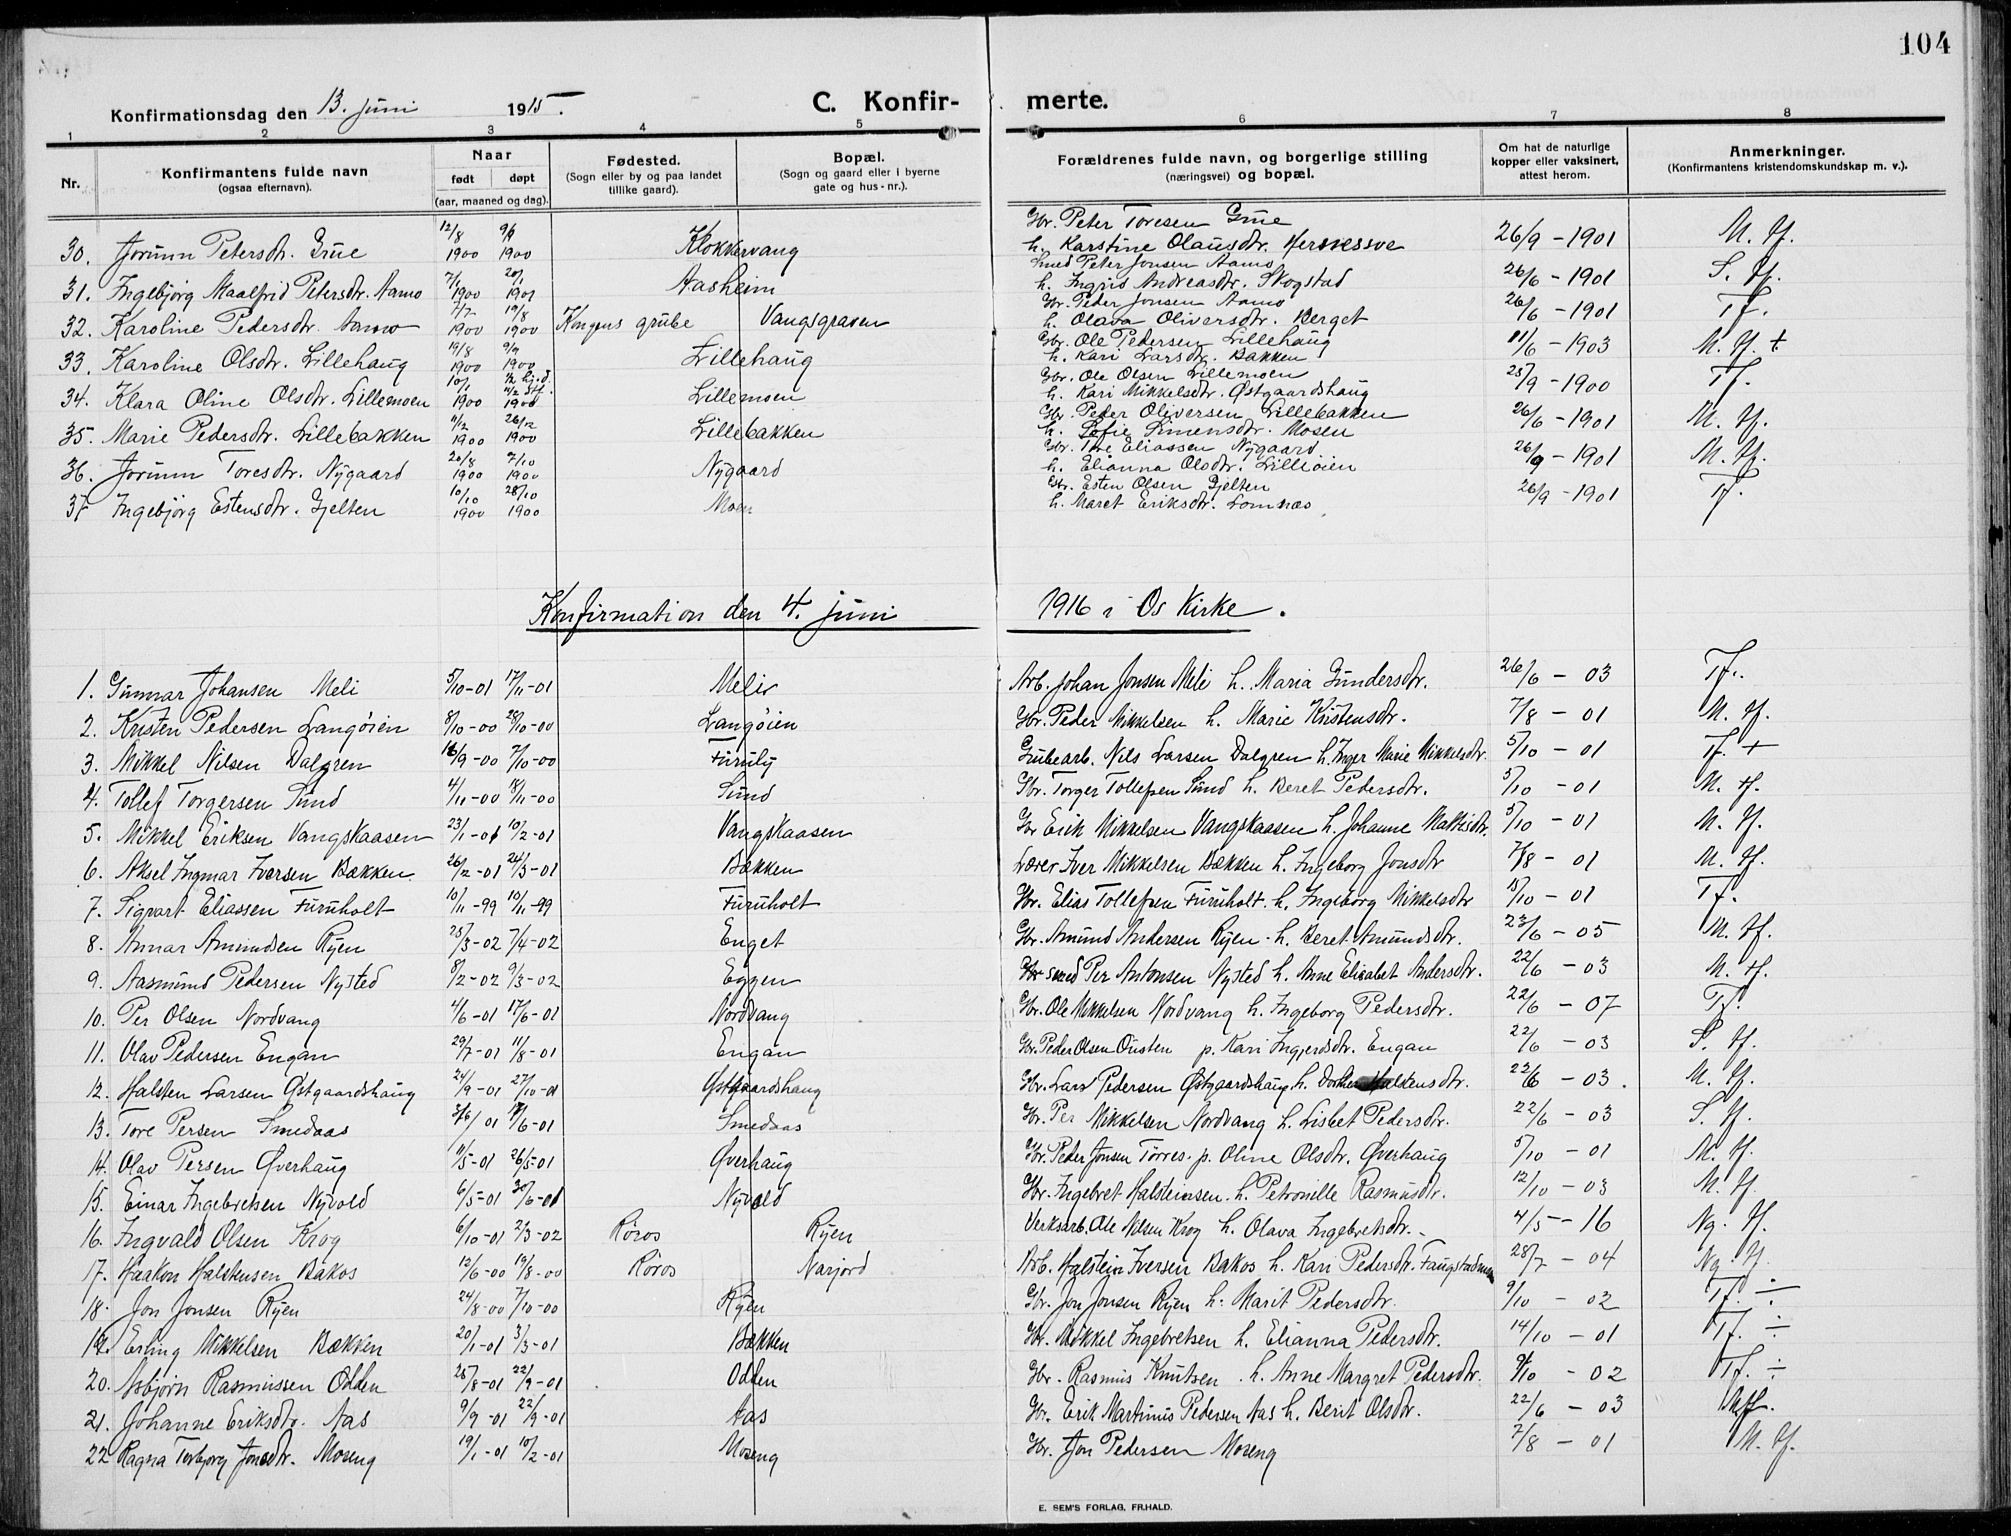 104
Konfirmationsdag den 13. juni 1915.
C. Konfir- merte.
1 2 3 4 5 6 7 8
Nr.
Konfirmantens fulde navn
(ogsaa efternavn).
Naar
født døpt
(aar, maaned og dag).
Fødested.
(Sogn eller by og paa landet
tillike gaard).
Bopæl.
(Sogn og gaard eller i byerne
gate og hus-nr.).
Forældrenes fulde navn, og borgerlige stilling
(næringsvei) og bopæl.
Om hat de naturlige
kopper eller vaksinert,
attest herom.
Anmerkninger.
(Konfirmantens kristendomskundskap m. v.).
30. Jorunn Petersdtr. Grue 12/8 1900 9/9 1900 Klokkervang Gbr. Peter Toresen Grue h. Karstine Olausdtr. 26/9 - 1901 M. tf.
31. Ingebjörg Maalfrid Petersdtr. Aamo 7/1 1900 20/1 1901 Aasheim Smed Peter Jonsen Aamo h. Ingrid Andreasdtr. Skogstad 26/6 - 1901 S. tf.
32. Karoline Pedersdtr. Aamo 7/7 1900 19/8 1900 Kongens grube Vangsgraven Gbr. Peder Jonsen Aamo h. Olava Oliversdtr. Berget 26/6 - 1901 Tf.
33. Karoline Olsdtr. Lillehaug 19/8 1900 9/9 1900 Lillehaug Gbr. Ole Pedersen Lillehaug h. Kari Larsdtr. Bakken 11/6 - 1903 M. tf. +
34. Klara Oline Olsdtr. Lillemoen 10/1 1900 1900 Lillemoen Gbr. Ole Olsen Lillemoen h. Kari Mikkelsdtr. Østgaardshaug 25/9 - 1900 Tf.
35. Marie Pedersdtr. Lillebakken 4/2 1900 26/12 1900 Lillebakken Gbr. Peder Oliversen Lillebakken h. Sofie Simensdtr. Mosen 26/6 - 1901 M. tf.
36. Jorunn Toresdtr. Nygaard 20/8 1900 7/10 1900 Nygaard Gbr. Tore Eliassen Nygaard h. Elianna Olsdtr. Lilleöien 26/9 - 1901 M. tf.
37 Ingebjörg Estensdtr. Gjelten 10/10 1900 28/10 1900 Moen Gbr. Esten Olsen Gjelten h. Maret Eriksdtr. Lomnæs 26/9 - 1901 Tf.
Konfirmation den 4. juni 1916 i Os Kirke.
1. Gunnar Johansen Meli 5/10-01 17/11-01 Melie Arb. Johan Jonsen Meli h. Maria Gundersdtr. 26/6 - 03 Tf.
2. Kristen Pedersen Langöien 8/10-00 28/10-00 Langöien Gbr. Peder Mikkelsen h. Marie Kristensdtr. 7/8 - 01 M. tf.
3. Mikkel Nilsen Dalgren 16/9-00 7/10-00 Furuly Grubearb. Nils Larsen Dalgren h. Inger Marie Mikkelsdtr. 5/10 - 01 Tf. +
4. Tollef Torgersen Sund 4/11-00 18/11-00 Sund Gbr. Torger Tollefsen Sund h. Beret Pedersdtr. 5/10 - 01 M. tf.
5. Mikkel Eriksen Vangskaasen 23/1-01 10/2-01 Vangskaasen Gbr Erik Mikkelsen Vangskaasen h. Johanne Mattisdtr. 5/10 - 01 M. tf.
6. Aksel Ingmar Iversen Bækken 26/2-01 24/3-01 Bækken Lærer Iver Mikkelsen Bækken h. Ingeborg Jonsdtr 7/8 - 01 M. tf.
7. Sigvart Eliassen Furuholt 10/11-99 10/11-99 Furuholt Gbr. Elias Tollefsen Furuholt. h. Ingeborg Mikkelsdtr 5/10 - 01 Tf.
8. Annar Amundsen Ryen 25/3-02 7/4-02 Enget Gbr. Amund Andersen Ryen. h. Beret Amundsdtr. 23/6 - 05 M. tf.
9. Aasmund Pedersen Nysted 8/2-02 9/3-02 Eggen Gbr smed Per Antonsen Nysted h. Anne Elisabet Andersdtr. 22/6 - 03 M. tf.
10. Per Olsen Nordvang 4/6-01 17/6-01 Nordvang Gbr. Ole Mikkelsen Nordvang h. Ingeborg Pedersdtr. 22/6 - 07 Tf.
11. Olav Pedersen Engan 29/7-01 11/8-01 Engan Gbr. Peder Olsen Ousten p. Kari Ingjerdsdtr. Engan 22/6 - 03 S. tf.
12. Halsten Larsen Østgaardshaug 24/9-01 27/10-01 Østgaardshaug Gbr. Lars Pedersen Østgaardshaug h. Halstensdtr. 22/6 - 03. M. tf.
13. Tore Persen Smedaas 3/6 01 /6-01 Smedaas Gbr. Per Mikkelsen Nordvang h. Lisbet Pedersdtr. 22/6 - 03 S. tf.
14. Olav Persen Øverhaug 11/5-01 26/5-01 Øverhaug Gbr. Peder Jonsen Törres. p. Oline Olsdtr. Øverhaug 5/10 - 01 M. tf.
15. Einar Ingebretsen Nyvold 6/5-01 30/6-01 Nyvold Gbr. Ingebret Halsteinsen. h. Petronille Rasmusdtr. 12/10 - 03 M. tf.
16. Ingvald Olsen Krog 6/10-01 2/3-02 Röros Ryen Verksarb. Ole Nilsen Krog h. Olava Ingebretsdtr. 4/5 - 16 Ng. tf.
17. Haakon Halstensen Bakos 12/6-00 19/8-00 Röros Narjord Arb. Halstein Iversen Bakos h. Kari Pedersdtr. 28/7 - 04 Ng. tf.
18. Jon Jonsen Ryen 24/8-00 7/10-00 Ryen Gbr. Jon Jonsen Ryen h. Marit Pedersdtr. 9/10 - 02 Tf. ÷
19. Erling Mikkelsen Bækken 20/1-01 3/3-01 Bækken Gbr. Mikkel Ingebretsen h. Elianna Pedersdtr. 14/10 - 01 Tf. ÷
20. Asbjörn Rasmussen Odden 25/8-01 22/9-01 Odden Gbr. Rasmus Knutsen. h. Anne Margret Pedersdtr. 9/10 - 02 Tf. ÷
21. Johanne Eriksdtr. Aas 9/9-01 22/9-01 Aas Gbr. Erik Martinus Pedersen Aas h. Berit Olsdtr. 22/6 - 03 Mtf.
22 Ragna Torbjorg Jonsdtr. Moseng 19/1-01 10/2-01 Moseng Gbr. Jon Pedersen Moseng 7/8 - 01 M. tf.
E. SEM'S FORLAG, FR.HALD.